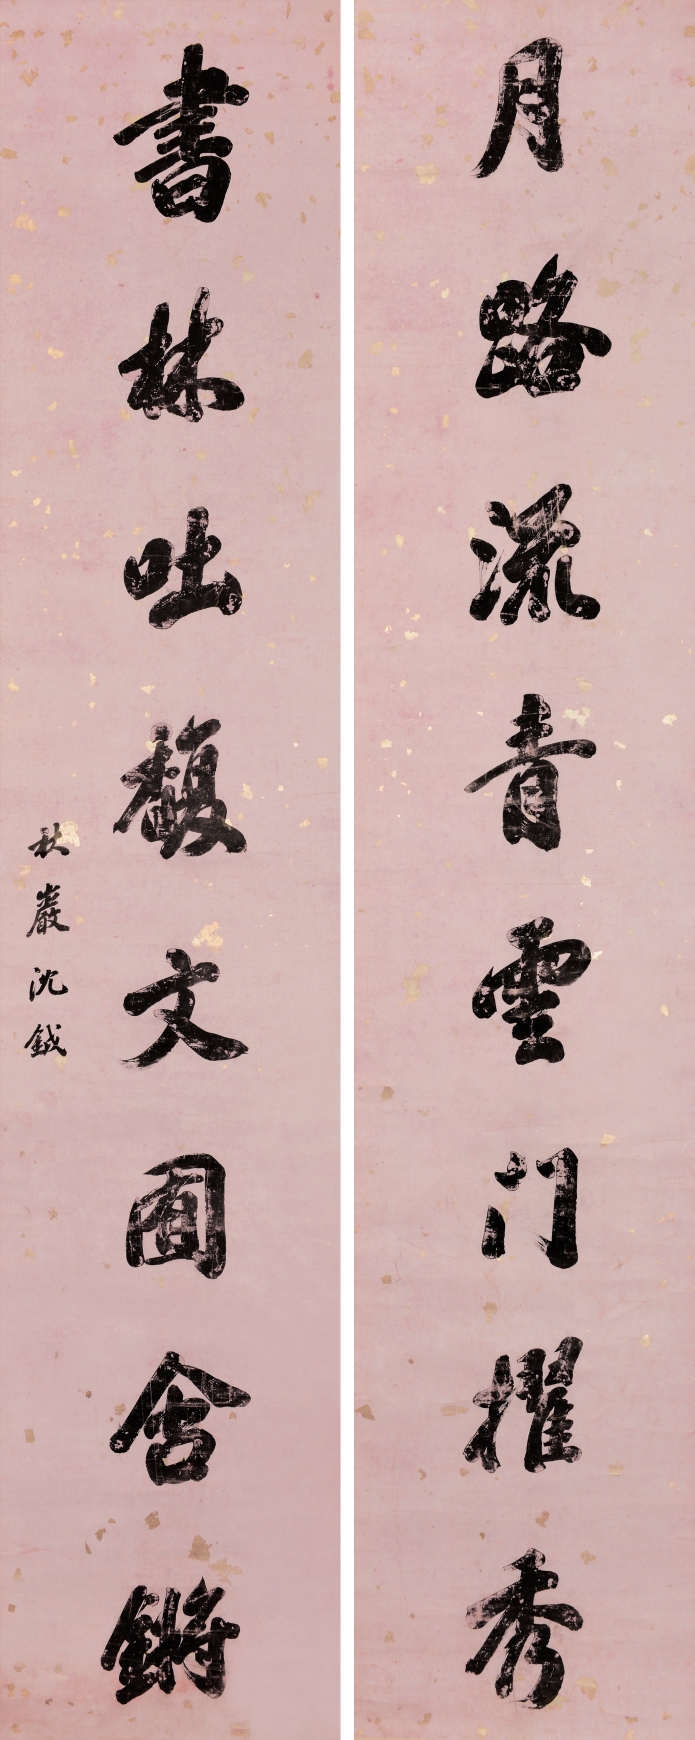 月路流青雲門擢秀
書林吐馥文囿含鏘
秋巖沈鉞